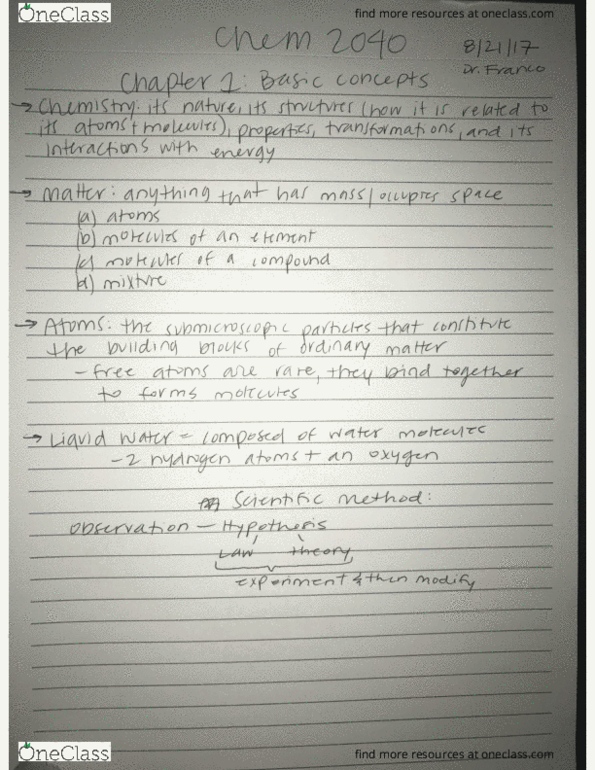 OneClass
find more resources at oneclass.com
Chem 2040
8/21/17
Dr. Franco
Chapter 1: Basic concepts
→ Chemistry: its nature, its structures (how it is related to
its atoms + molecules), properties, transformations, and its
interactions with energy
→ Matter: anything that has mass/occupies space
(a) atoms
(b) molecules of an element
(c) molecules of a compound
(d) mixture
→ Atoms: the submicroscopic particles that constitute
the building blocks of ordinary matter
- free atoms are rare, they bind together
to forms molecules
→ Liquid Water = composed of water molecules
- 2 hydrogen atoms + an oxygen
Scientific method:
Observation — Hypothesis
Law theory
experiment & then modify
OneClass
find more resources at oneclass.com